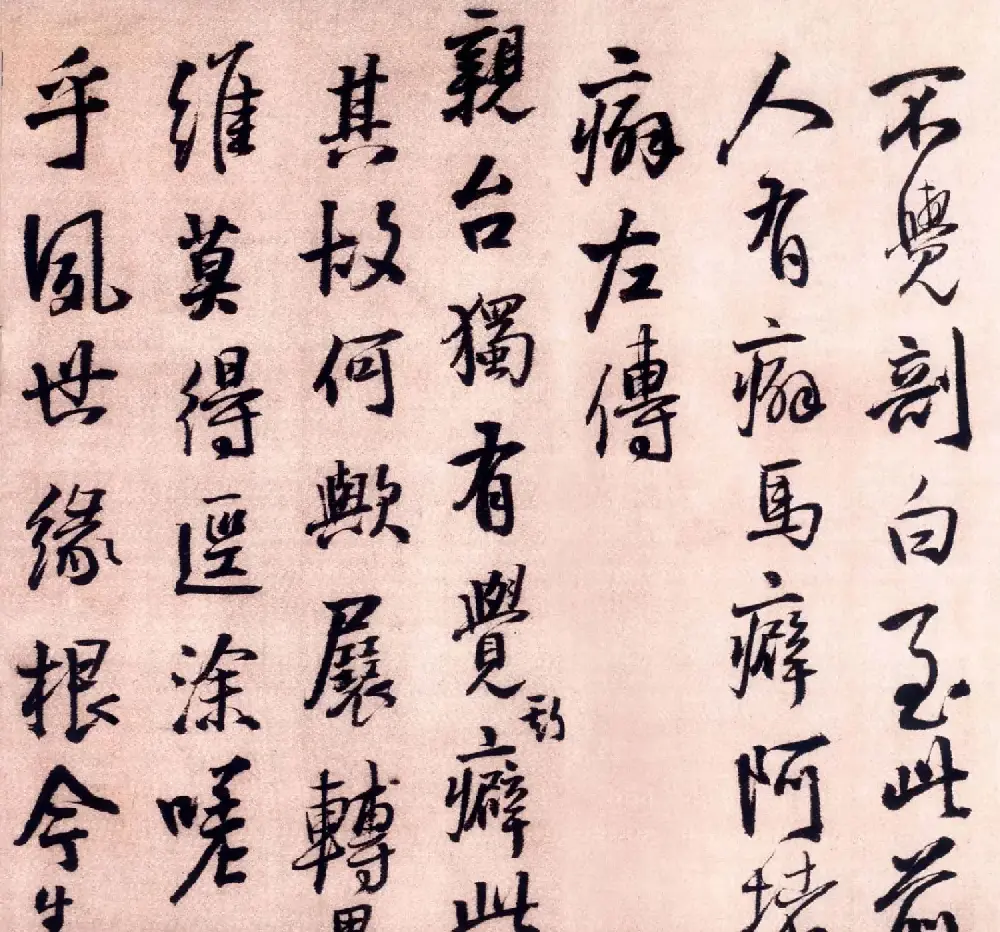 不覺剖白至此前
人有癖馬癖阿堵
癖左傳
親台獨有覺斯癖此
其故何歟展轉思
維莫得逕塗嗟
乎夙世緣根今生